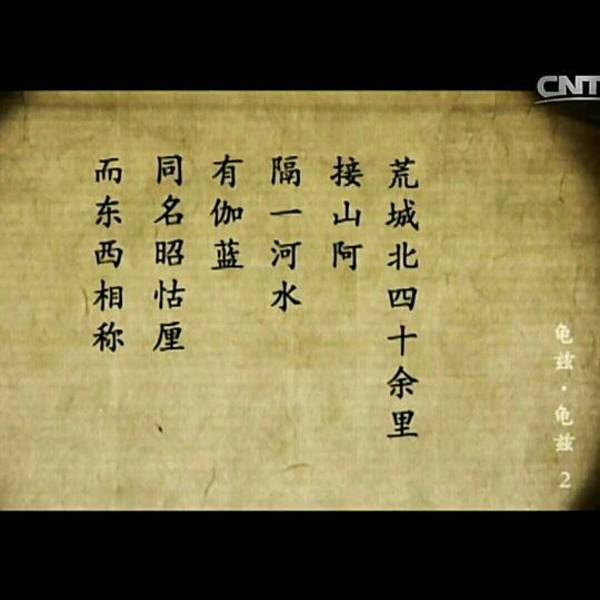 荒城北四十余里
接山阿
隔一河水
有伽蓝
同名昭怙厘
而东西相称
CNT
龟兹·龟兹 2